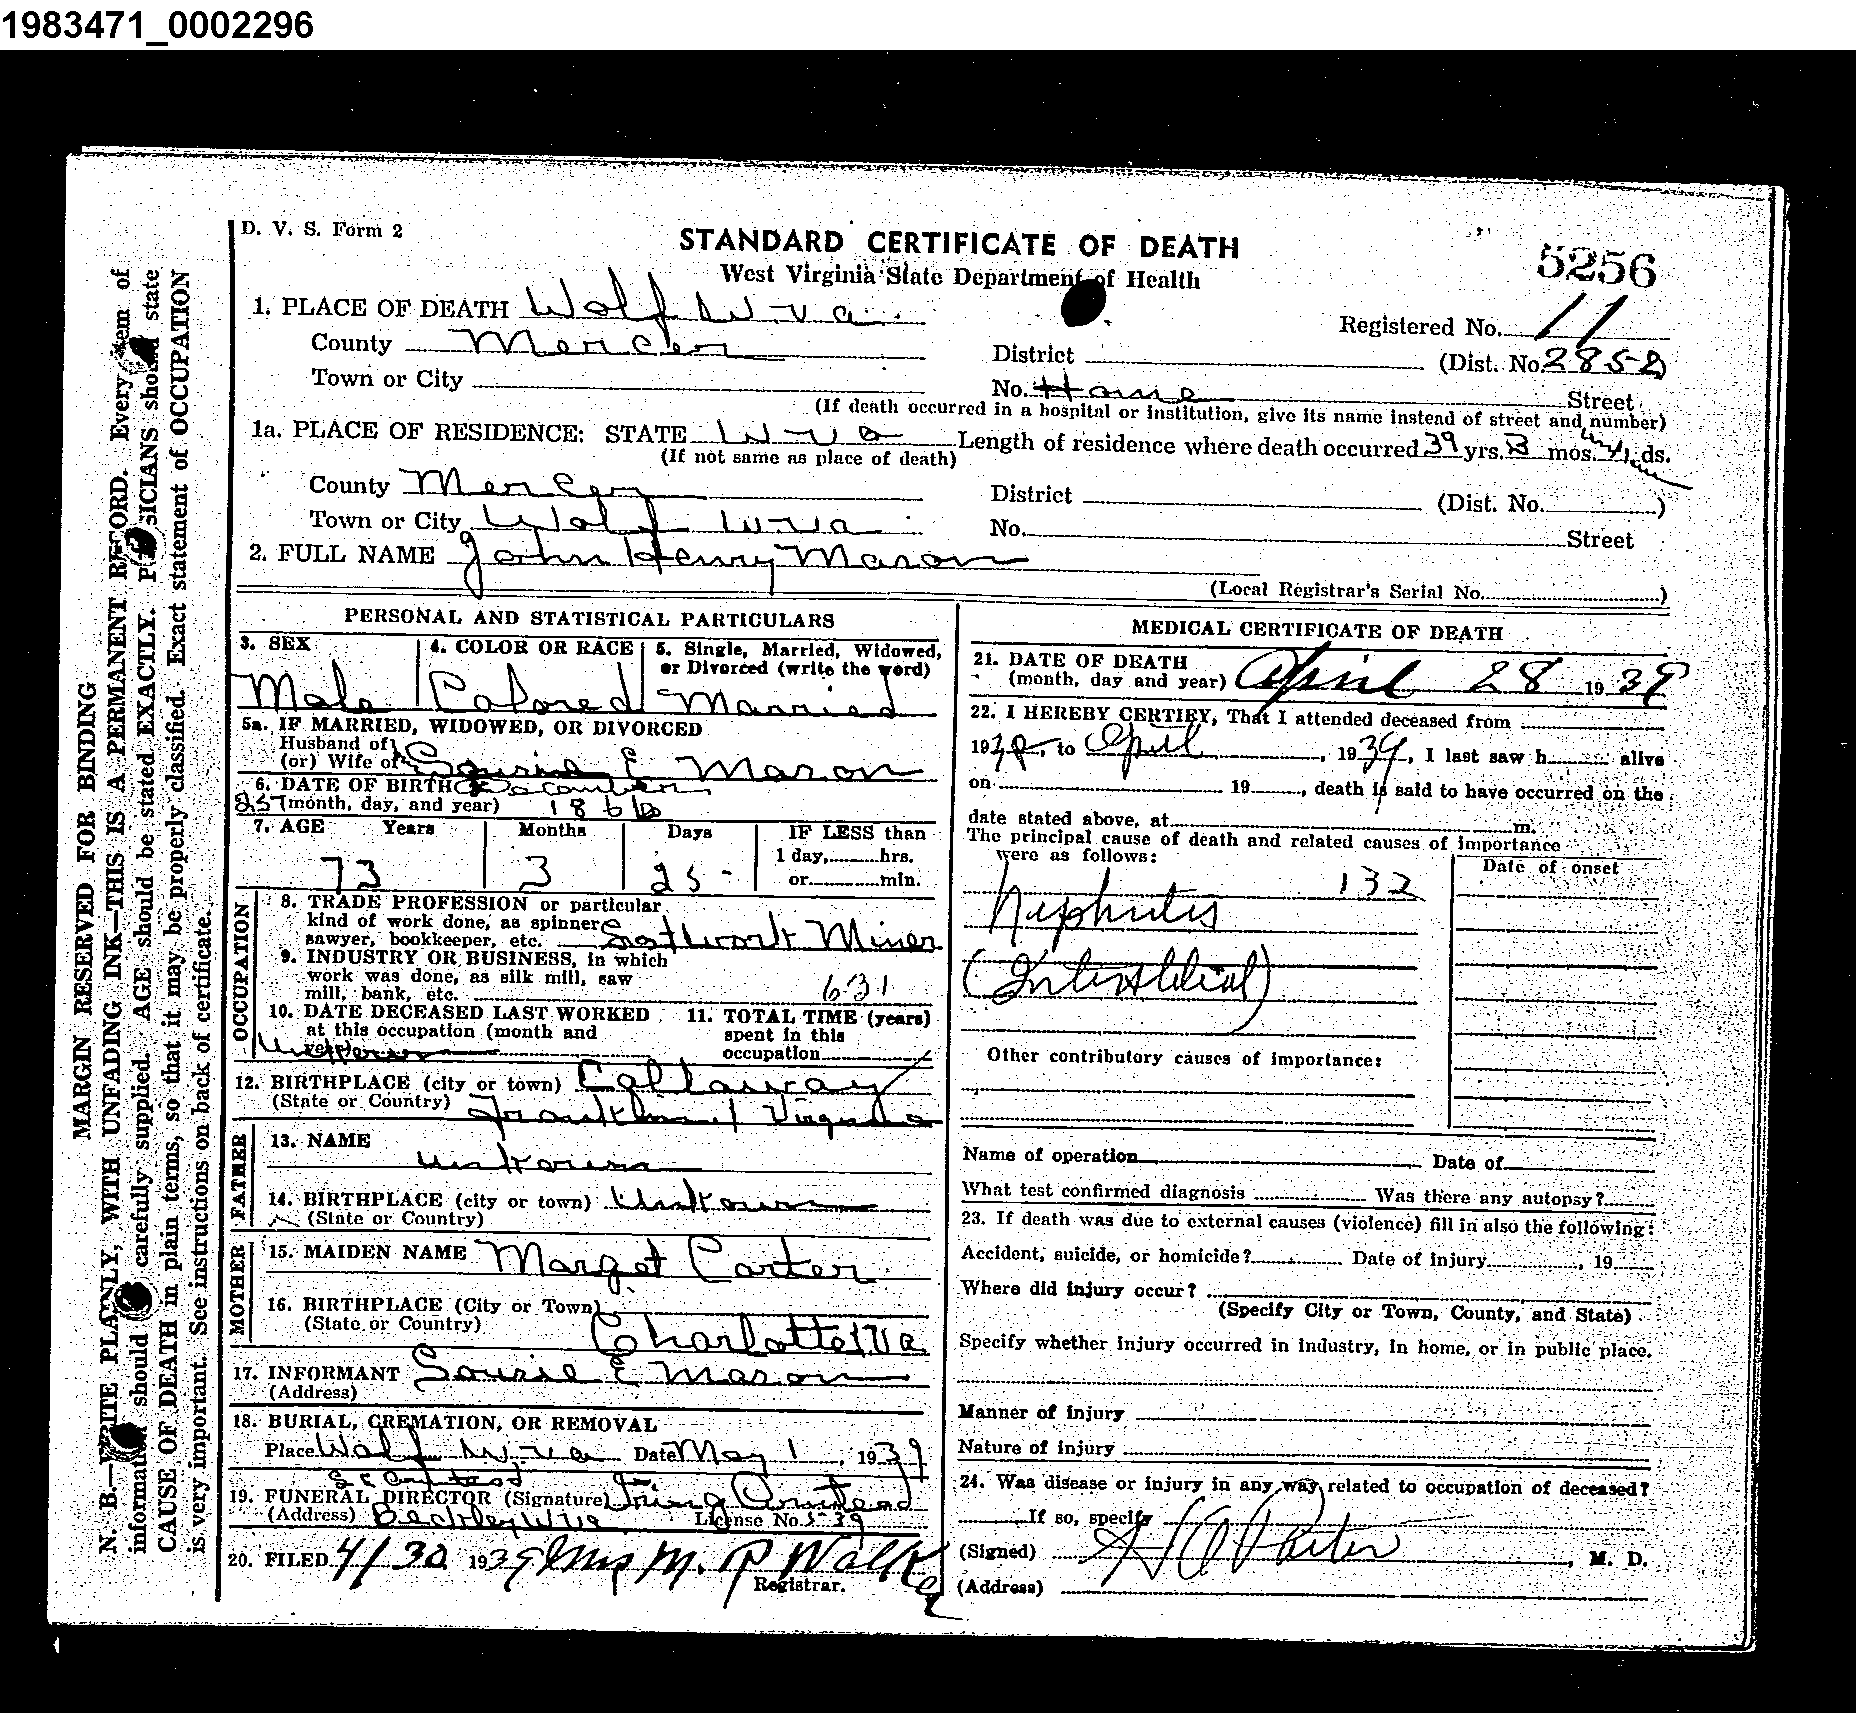 1983471_0002296
D. V. S. Form 2
STANDARD CERTIFICATE OF DEATH
West Virginia State Department of Health
5256
1. PLACE OF DEATH Wolf W va.
Registered No. 11
County Mercer
District (Dist. No. 2852)
Town or City
No. Home Street
(If death occurred in a hospital or institution, give its name instead of street and number)
1a. PLACE OF RESIDENCE: STATE W va Length of residence where death occurred 39 yrs. 3 mos. ds.
(If not same as place of death)
County Mercer
District (Dist. No. )
Town or City Wolf W va
No. Street
2. FULL NAME John Henry Mason
(Local Registrar's Serial No. )
PERSONAL AND STATISTICAL PARTICULARS
3. SEX
Male
4. COLOR OR RACE
Colored
5. Single, Married, Widowed, or Divorced (write the word)
Married
5a. IF MARRIED, WIDOWED, OR DIVORCED
Husband of
(or) Wife of E Mason
6. DATE OF BIRTH December
(month, day, and year) 25 186
7. AGE Years Months Days IF LESS than
1 day, hrs.
or min.
73 3 25
OCCUPATION
8. TRADE PROFESSION or particular
kind of work done, as spinner
sawyer, bookkeeper, etc. Miner
9. INDUSTRY OR BUSINESS, in which
work was done, as silk mill, saw
mill, bank, etc. 631
10. DATE DECEASED LAST WORKED
at this occupation (month and
year)
11. TOTAL TIME (years)
spent in this
occupation
12. BIRTHPLACE (city or town) Callaway
(State or Country) Franklin / Virginia
FATHER
13. NAME unkown
14. BIRTHPLACE (city or town) Unkown
(State or Country)
MOTHER
15. MAIDEN NAME Marget Carter
16. BIRTHPLACE (City or Town)
(State or Country) Charlotte, Va
17. INFORMANT E Mason
(Address)
18. BURIAL, CREMATION, OR REMOVAL
Place Wolf W va Date May 1, 1939
19. FUNERAL DIRECTOR (Signature)
(Address) Beckley W va License No. 539
20. FILED 4/30 1939 Mrs M. P Walk
Registrar.
MEDICAL CERTIFICATE OF DEATH
21. DATE OF DEATH
(month, day and year) April 28 1939
22. I HEREBY CERTIFY, That I attended deceased from
19 , to April , 1939, I last saw h alive
on 19 , death is said to have occurred on the
date stated above, at m.
The principal cause of death and related causes of importance
were as follows:
Date of onset
132
Nephritis
(Interstitial)
Other contributory causes of importance:
Name of operation Date of
What test confirmed diagnosis Was there any autopsy?
23. If death was due to external causes (violence) fill in also the following:
Accident, suicide, or homicide? Date of injury , 19
Where did injury occur?
(Specify City or Town, County, and State)
Specify whether injury occurred in industry, in home, or in public place.
Manner of injury
Nature of injury
24. Was disease or injury in any way related to occupation of deceased?
If so, specify
(Signed) , M. D.
(Address)
MARGIN RESERVED FOR BINDING
N. B.—WRITE PLAINLY, WITH UNFADING INK—THIS IS A PERMANENT RECORD. Every item of
information should be carefully supplied. AGE should be stated EXACTLY. PHYSICIANS should state
CAUSE OF DEATH in plain terms, so that it may be properly classified. Exact statement of OCCUPATION
is very important. See instructions on back of certificate.